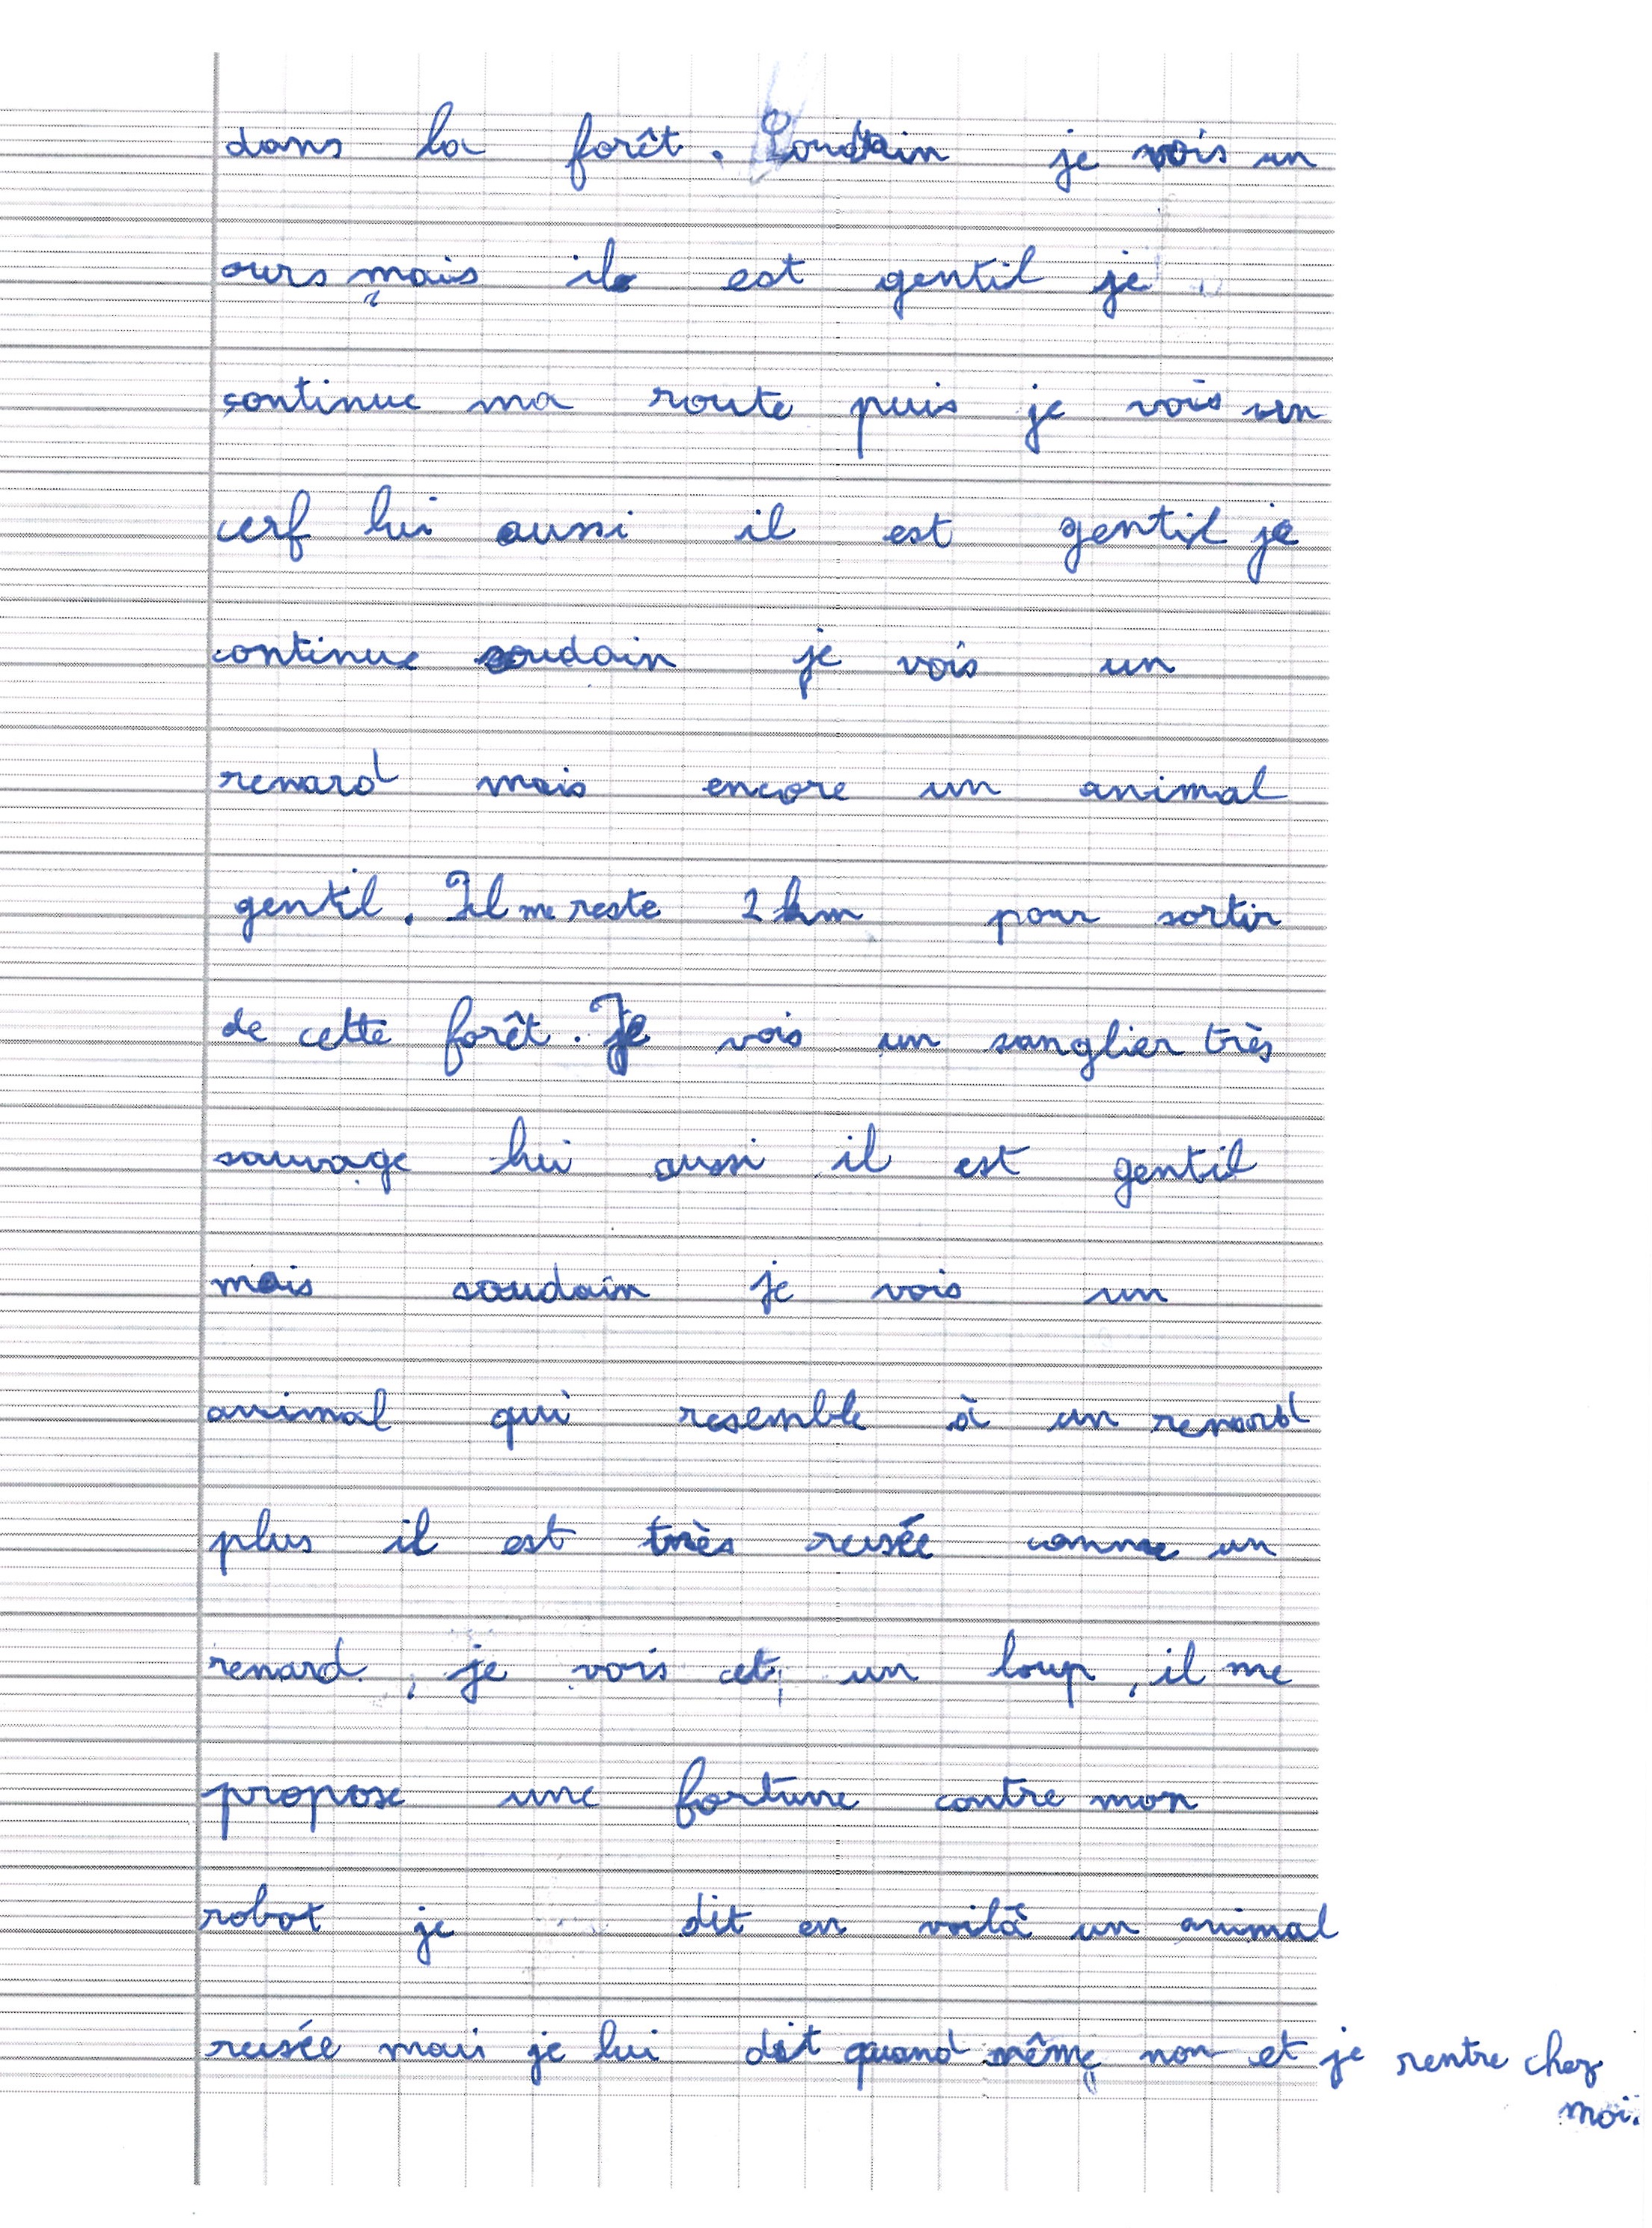 dans la forêt. Soudain je vois un
ours mais il est gentil je
continue ma route puis je vois un
cerf lui aussi il est gentil je
continue soudain je vois un
renard mais encore un animal
gentil. Il me reste 2 km pour sortir
de cette forêt. Je vois un sanglier très
sauvage lui aussi il est gentil
mais soudain je vois un
animal qui resemble à un renard
plus il est très rusée comme un
renard, je vois cet, un loup, il me
propose une fortune contre mon
robot je dit en voilà un animal
rusée mais je lui dit quand même non et je rentre chez
moi.